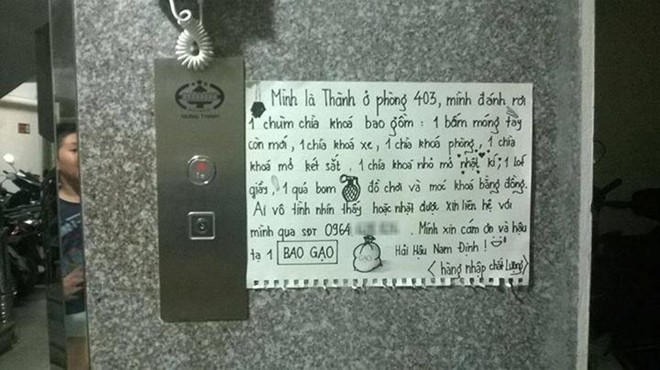 HƯNG THỊNH
Mình là Thành ở phòng 403, mình đánh rơi
1 chùm chìa khoá bao gồm : 1 bấm móng tay
còn mới, 1 chìa khoá xe, 1 chìa khoá phòng, 1 chìa
khoá mở két sắt, 1 chìa khoá nhỏ mở nhật kí, 1 lốt
giầy, 1 quả bom đồ chơi và móc khoá bằng đồng.
Ai vô tình nhìn thấy hoặc nhặt được xin liên hệ với
mình qua sđt 0964 . Mình xin cám ơn và hậu
tạ 1 BAO GẠO GẠO Hải Hậu Nam Định !
(hàng nhập chất lượng)